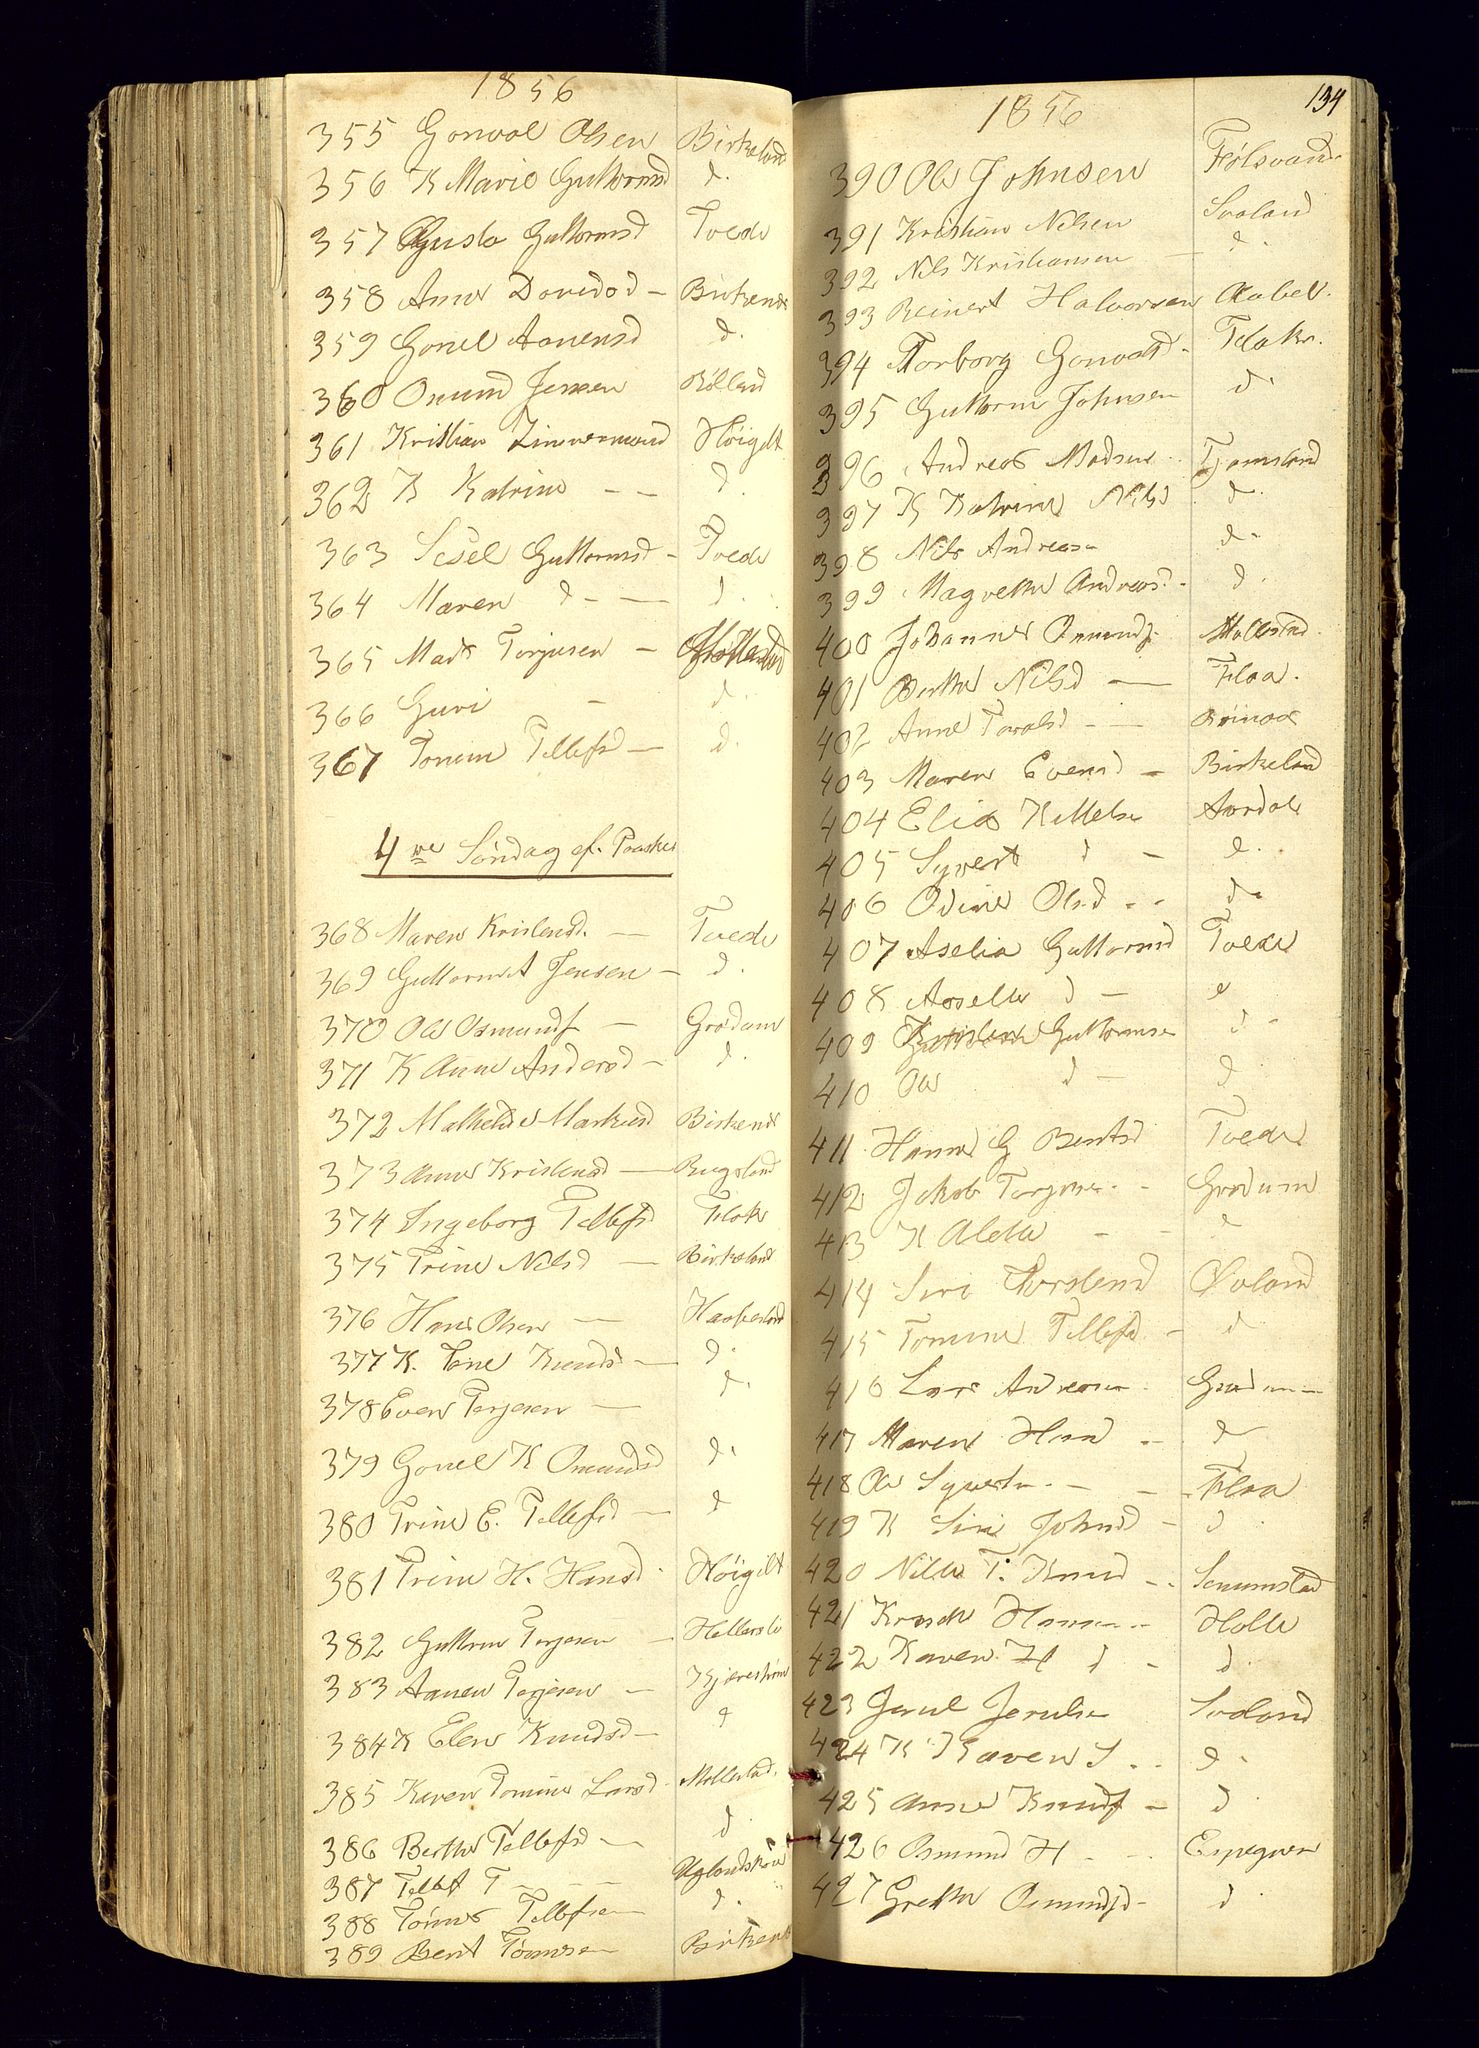 1856
355 Gonval Olsen Birkeland
356 K Marie Guttormsd d.
357 Gusta Guttormsd Tvede
358 Anne Doredod – Birkenes
359 Gonel Aanensd d.
360 Omund Jensen
361 Kristian Zimmermand Høigilt
362 K Katrine – – d.
363 Sesel Guttormsd – Tvede
364 Maren d – — d.
365 Mads Torjusen – Møllestad
366 Guri – d.
367 Tomine Tellefsd — d.
4de Søndag ef. Paaske
368 Maren Kristensd. — Tvede
369 Guttorm A Jensen – d.
370 Ole Osmunds — Grødum
371 K Anne Andersd – d.
372 Mathilde Markusd Birkenes
373 Anne Kristensd — Rugsland
374 Ingeborg Tellefsd Flake
375 Trine Nilsd — Birkeland
376 Hans Olsen — Haabesland
377 K. Tone Knudsd — d.
378 Even Terjesen — d.
379 Gonel K Omundsd d.
380 Trine E. Tellefsd — d
381 Trine H. Hansd. Høigilt
382 Guttorm Terjesen – Hellersli
383 Aanen Terjesen – Kjærestrøm
384 K Elen Knudsd — d
385 Karen Tomine Larsd. Møllestad.
386 Berthe Tellefsd — d
387 Tellef T – – – Uglandskaa
388 Tønnes Tellefsen d.
389 Bent Tønnesen Birkenes
134
1856
390 Ole Johnsen Følsvand
391 Kristian Nilsen Svaland
392 Nils Kristiansen – d.
393 Reinert Halvorsen Aabel.
394 Torborg Gonvalsd. Flake.
395 Guttorm Johnsen d.
396 Andreas Madsen Tjomsland
397 K Katrine Nilsd d.
398 Nils Andreasen d.
399 Magrethe Andreasd. – d.
400 Johannes Omunds. Møllestad.
401 Berthe Nilsd — Flaa.
402 Anne Tovalsd – — Reinaas
403 Maren Evensd – Birkeland
404 Elias Kittelsen Aardal
405 Syvert d – d.
406 Odine Olsd – – d.
407 Aselia Guttormsd Tvede
408 Aaselle d – d
409 Guttormsen d –
410 Ole d – d
411 Hanne G Bentsd Tvede
412 Jakob Torjusen – – Grødum
413 K Alette – – d
414 Siri Torstensd Øvland
415 Tomine Tellefsd – d
416 Lars Andreasen. Grødum
417 Maren Hansd – – d
418 Ole Syvertsen – – – Flaa
419 K Siri Johnsd – d.
420 Nille T. Knudsd – . Senumstad
421 Hansen – – Holte
422 Karen H d – d.
423 Jerul Jerulsen Svaland
424 K Karen S . . d.
425 Anne Knuds – d
426 Osmund H – – . Espegren
427 Grethe Osmundsd – d